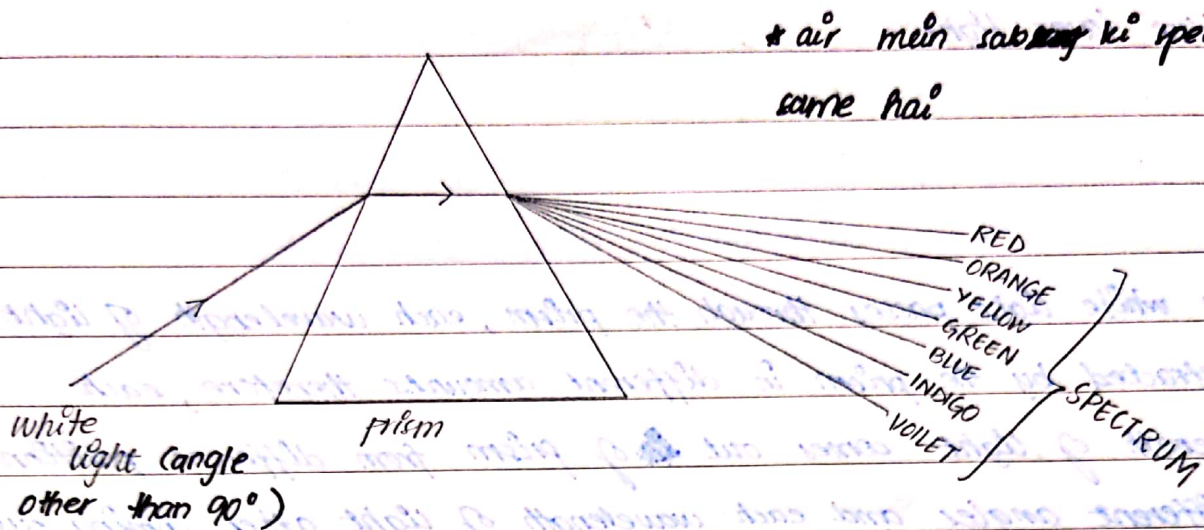 * air mein sab ki spe
same hai
RED
ORANGE
YELLOW
GREEN
BLUE
INDIGO
VOILET
SPECTRUM
white
light (angle
other than 90°)
prism